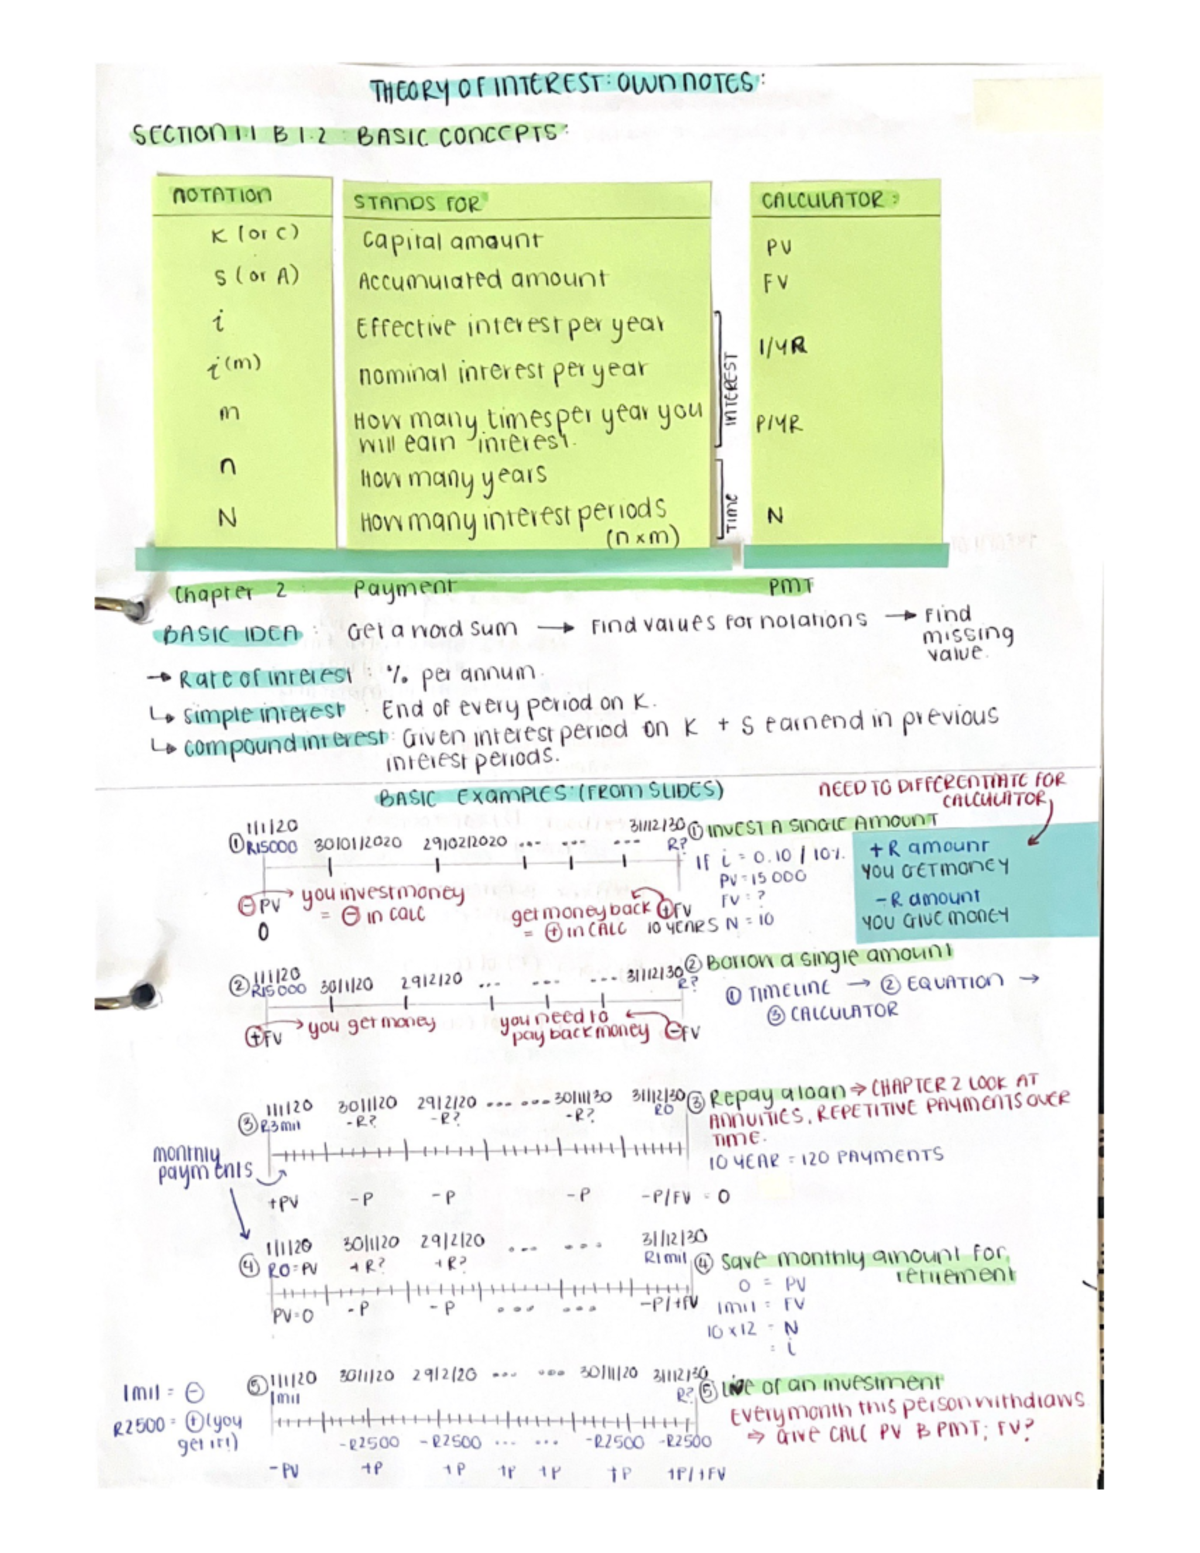 THEORY OF INTEREST: OWN NOTES:
SECTION 1.1 B 1.2 : BASIC CONCEPTS:
NOTATION STANDS FOR CALCULATOR:
K (or C) Capital amount PV
S (or A) Accumulated amount FV
i Effective interest per year
I/YR
i(m) nominal interest per year
m How many times per year you
will earn interest.
P/YR
INTEREST
n How many years
N How many interest periods N
(n x m)
TIME
Chapter 2 Payment PMT
BASIC IDEA : Get a word sum → Find values for notations → Find
missing
value.
→ Rate of interest : % per annum.
↳ Simple interest : End of every period on K.
↳ compound interest: Given interest period on K + S earnend in previous
interest periods.
BASIC EXAMPLES: (FROM SLIDES)
NEED TO DIFFERENTIATE FOR
CALCULATOR
① 1/1/20 30/01/2020 29/02/2020 ... ... ... 31/12/30
R15000 R?
⊖PV → you invest money
= ⊖ in calc
0
get money back ⊕FV
= ⊕ in CALC 10 YEARS
① INVEST A SINGLE AMOUNT
If i = 0.10 / 10%
PV = 15 000
FV = ?
N = 10
+ R amount
YOU GET MONEY
- R amount
YOU GIVE MONEY
② 1/1/20 30/1/20 29/2/20 ... ... ... 31/12/30
R15000 R?
⊕FV → you get money
you need to
pay back money ⊖FV
② Borrow a single amount
① TIMELINE → ② EQUATION →
③ CALCULATOR
③ 1/1/20 30/1/20 29/2/20 ... ... 30/11/30 31/12/30
R3mil -R? -R? -R? R0
monthly
payments
+PV -P -P -P -P/FV = 0
③ Repay a loan → CHAPTER 2 LOOK AT
ANNUITIES, REPETITIVE PAYMENTS OVER
TIME.
10 YEAR = 120 PAYMENTS
④ 1/1/20 30/1/20 29/2/20 ... ... 31/12/30
R0=PV +R? +R? R1mil
PV=0 -P -P ... ... -P/+FV
④ Save monthly amount for
retirement
0 = PV
1mil = FV
10 x 12 = N
= i
⑤ 1/1/20 30/1/20 29/2/20 ... ... 30/11/20 31/12/30
1mil R?
1mil = ⊖
R2500 = ⊕ (you
get it!)
-R2500 -R2500 ... ... -R2500 -R2500
-PV +P +P +P +P +P +P/+FV
⑤ Live of an investment
Every month this person withdraws
→ GIVE CALC PV B PMT; FV?